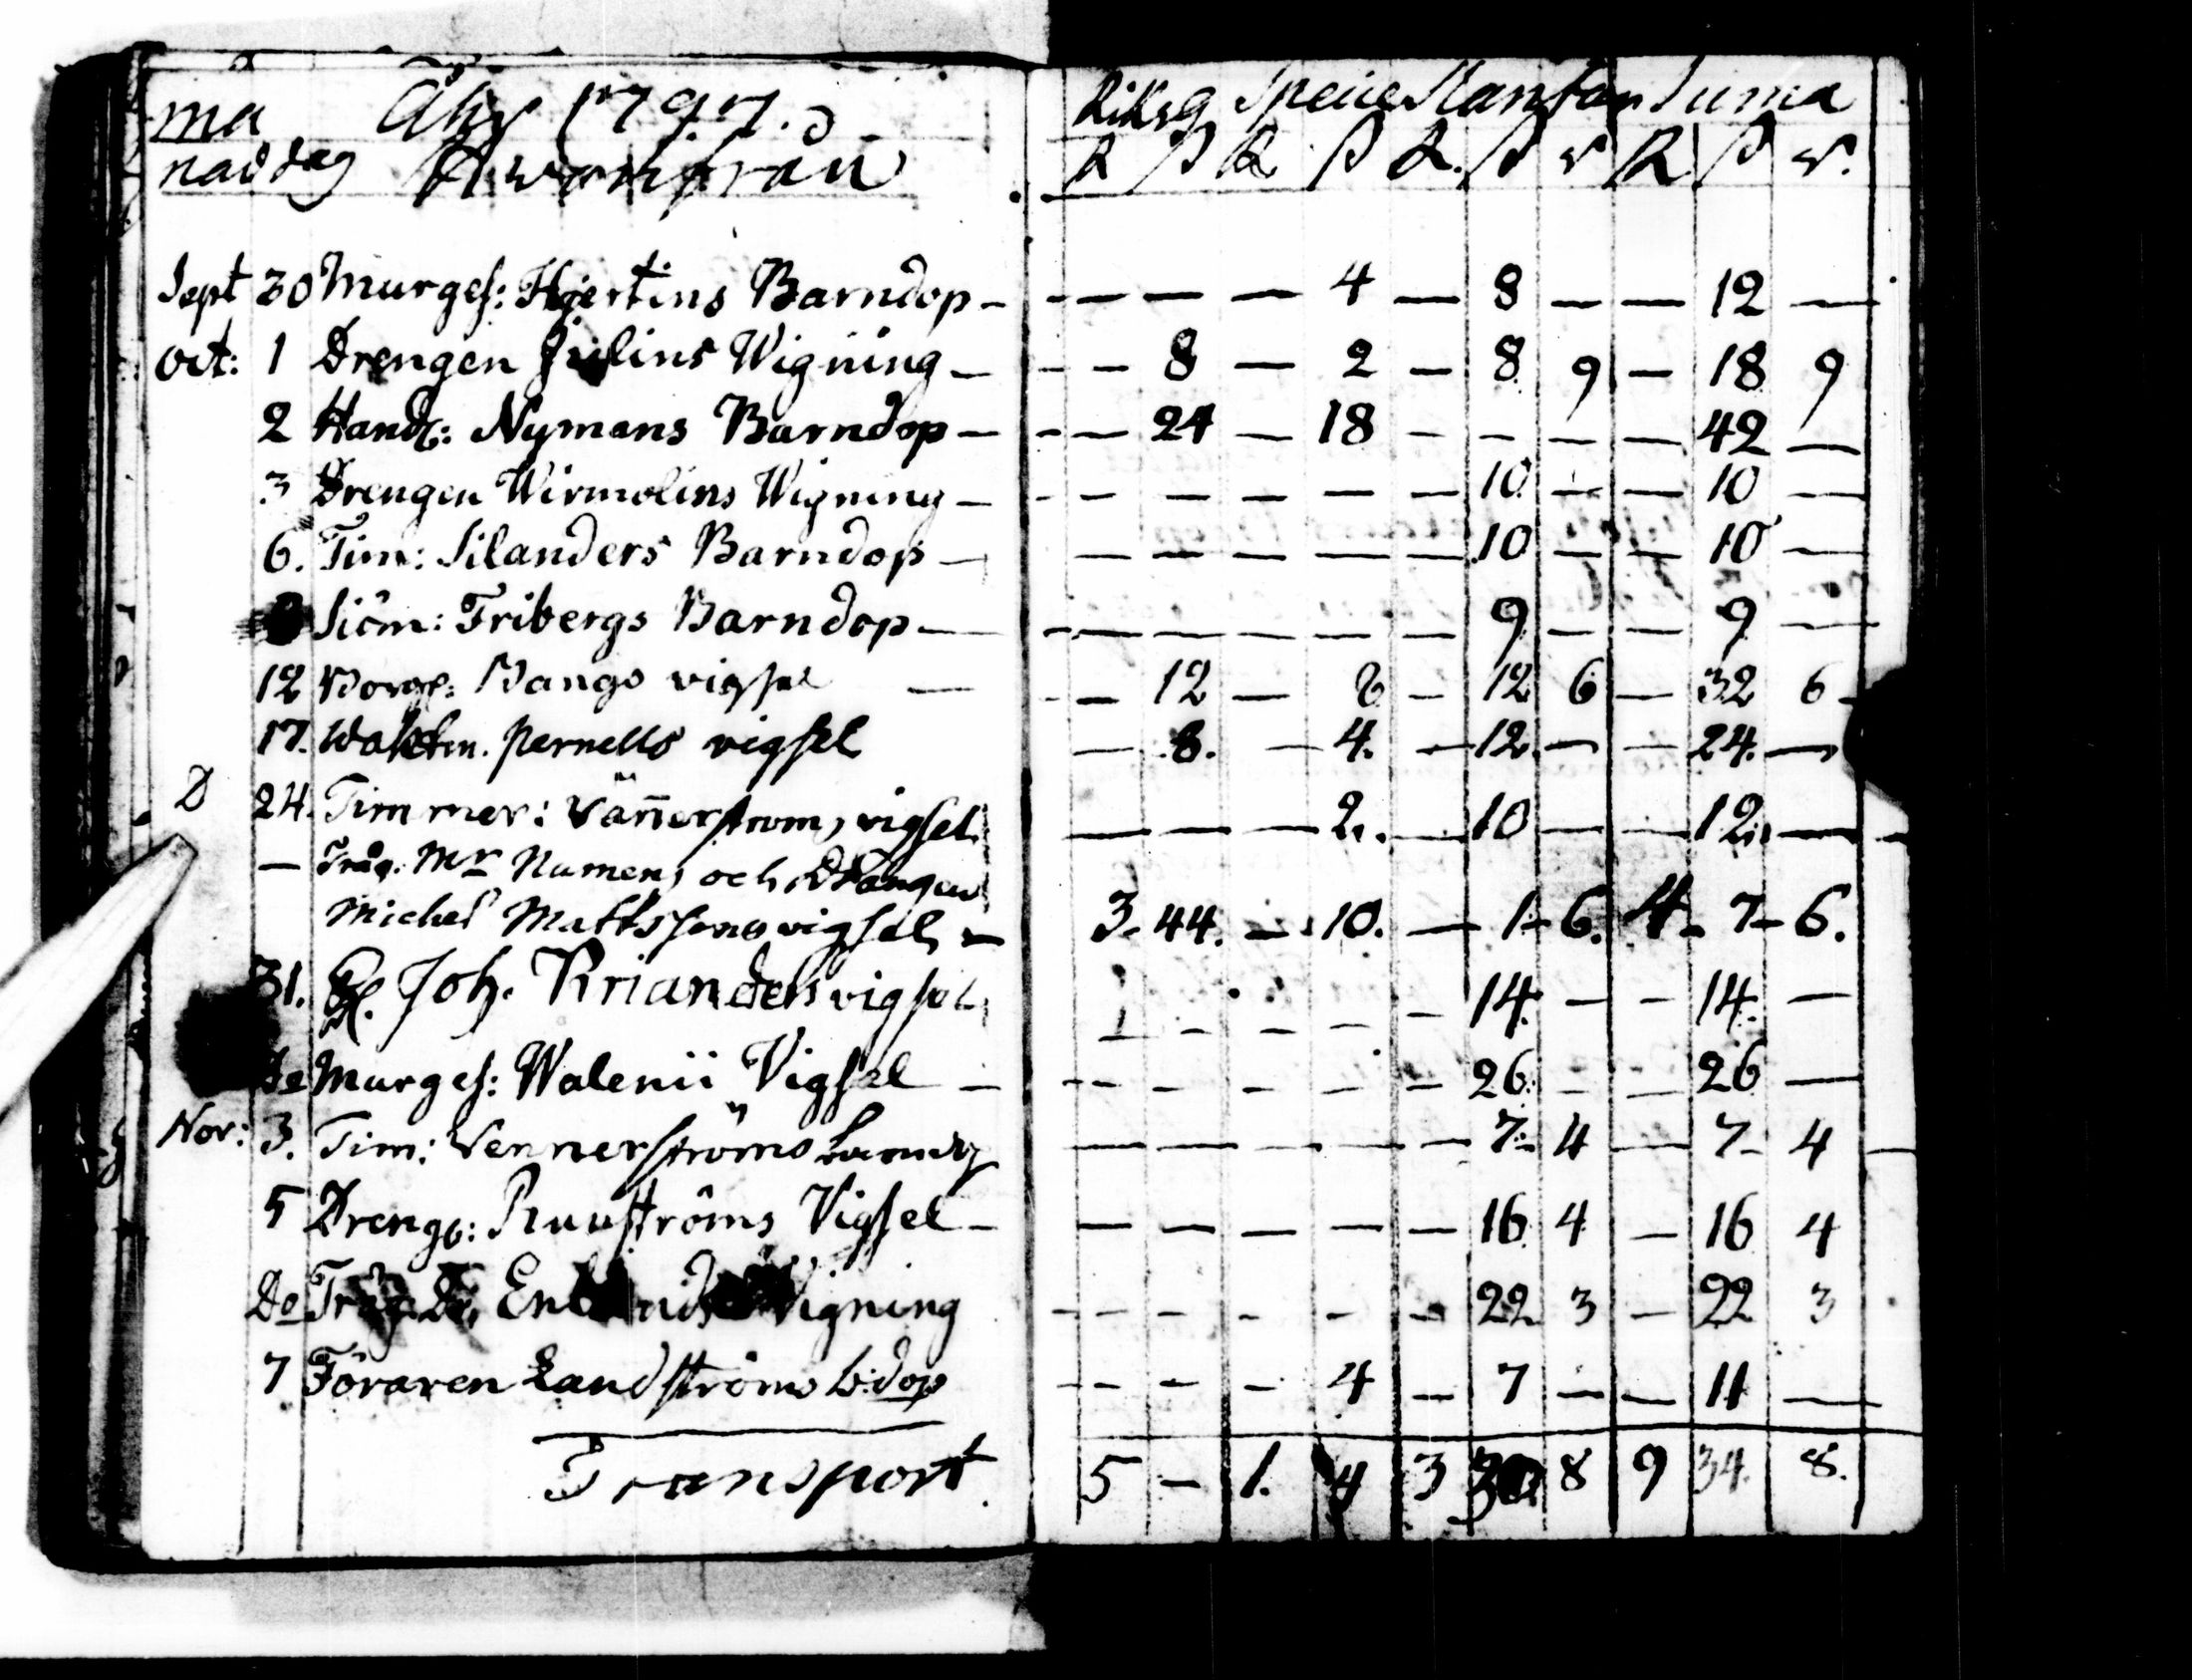 ma Åhr 1797.
nad dag Hwarifrån
Riksg Specie Slantar Suma
R ß R ß R. ß r R ß r.
Sept 30 Murges: Hjertins Barndop — — — — 4 — 8 — — 12 —
Oct: 1 Drengen Julins Wigning — — 8 — 2 — 8 9 — 18 9
2 Handl: Nymans Barndop — — 24 — 18 — — — — 42 —
3 Drengen Wirmolins Wigning — — — — — — 10 — — 10 —
6. Tim: Silanders Barndop — — — — — — 10 — — 10 —
Siöm: Fribergs Barndop — — — — — — 9 — — 9 —
12 Bangs vigsel — — 12 — 8 — 12 6 — 32 6
17. Waktm. Pernells vigsel — 8. — 4. — 12. — — 24. —
D 24. Timmer: Vännerströms vigsel — — — 2. — 10 — — 12. —
— Tråg: Mr Numens och Drängen
Michel Mattssons vigsel — 3. 44. — 10. — 1 6. 4 7 6.
31. Joh. Krianders vigsel — — — — — 14. — — 14. —
De Murges: Walenii Vigsel — — — — — — 26. — — 26 —
Nov: 3. Tim: Vennerströms — — — — — 7 4 — 7 4
5 Drengs: Ruuströms Vigsel — — — — — — 16 4 — 16 4
Do Wigning — — — — — 22 3 — 22 3
7 Föraren Landströms b:dop — — — 4 — 7 — — 11 —
Transport 5 — 1. 4 3 8 9 34. 8.